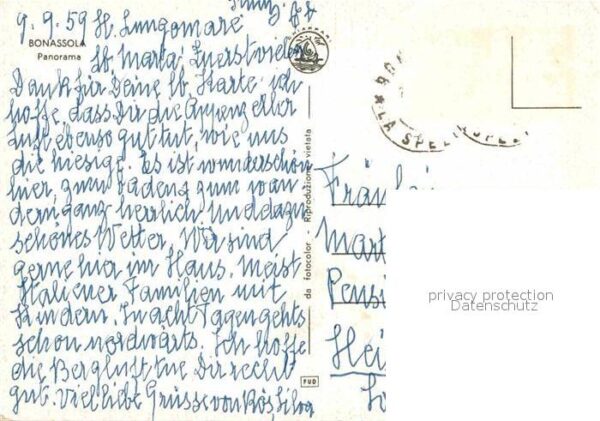 9.9.59 H. Lungomare
BONASSOLA
Panorama
lb. Marta, Zuerst vielen
Dank für Deine lb. Karte, ich
hoffe, dass Dir die Appenzeller
Luft ebenso gut tut, wie uns
die hiesige. Es ist wunderschön
hier, zum baden & zum wan
dern ganz herrlich. Und dazu
schönes Wetter. Wir sind
gerne hier im Haus, meist
Italiener, Familien mit
Kindern. In acht Tagen gehts
schon nordwärts. Ich hoffe
die Bergluft tue Dir recht
gut. Viel liebe Grüsse von
da fotocolor - Riproduzione vietata
FUD
LA SPEZ
Fräulei
Mart
Pensi
Hei
privacy protection
Datenschutz